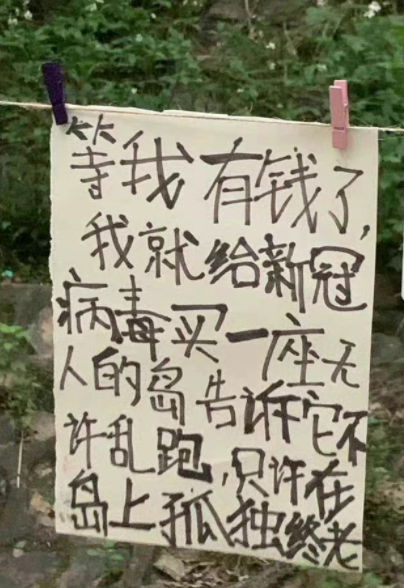 等我有钱了,
我就给新冠
病毒买一座无
人的岛告诉它不
许乱跑,只许在
岛上孤独终老